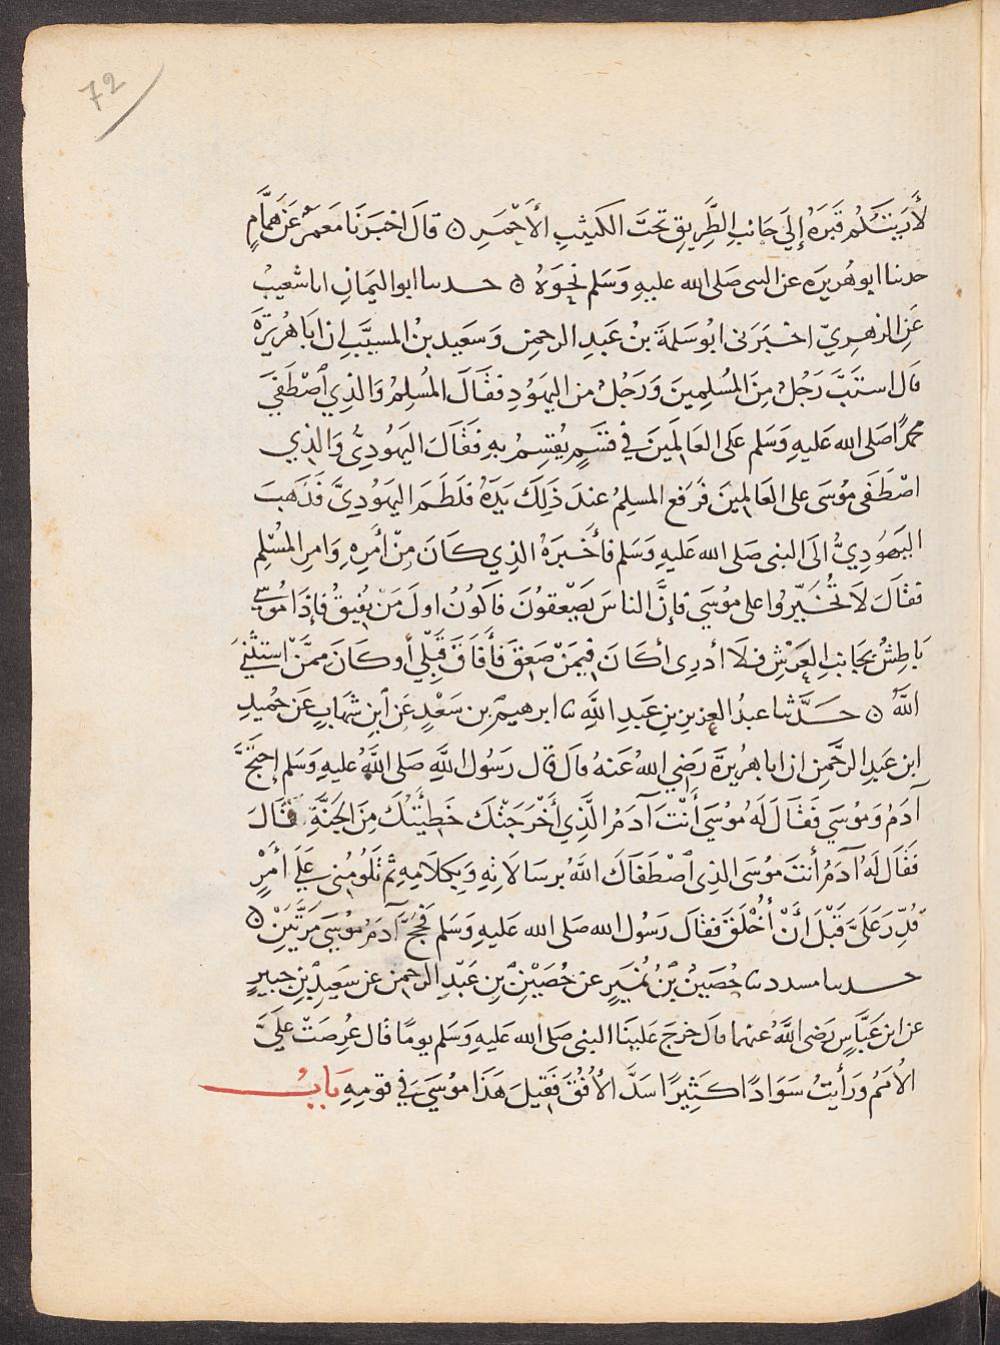 72
لَأَرَيْتُكُمْ قَبْرَهُ إِلَى جَانِبِ الطَّرِيقِ تَحْتَ الكَثِيبِ الأَحْمَرِ ۞ قَالَ اخبَرَنَا مَعمَرٌ عَن هَمَّامٍ
حدثنا ابو هُرَيرَه عن النبى صَلى الله عليهِ وَسَلم نَحْوَهُ ۞ حدثنا ابو اليَمانِ انا شعيبٌ
عَنِ الزهرِيّ اخبَرَنى ابُو سَلمَةَ بنُ عَبدِ الرحمن وَسَعِيد بنُ المسيَّب ان ابَا هُرَيْرَةَ
قال استَبَّ رَجُلٌ مِنَ المُسلِمِينَ وَرَجُلٌ من اليهُودِ فقَالَ المُسلِمُ وَالذِي اصْطَفَى
محمدًا صَلى الله عَليهِ وَسَلم عَلى العَالَمِينَ فِي قَسَمٍ يُقسِمُ بِهِ فَقَالَ اليَهُودِىُّ وَالذِي
اصْطَفَى مُوسَى على العَالمِينَ فَرَفع المسلِمُ عندَ ذَلِكَ يَدَهُ فلَطَمَ اليَهُودِيَّ فَذَهبَ
اليَهُودِيُّ الَى النبى صَلى الله عَليهِ وَسَلم فأَخبَرَهُ الذِي كَانَ مِنْ أَمرِهِ وَامرِ المُسْلِم
فقَالَ لَا تُخَيِّرُوا على مُوسَى فإِنَّ الناسَ يَصْعقوُنَ فاكُونُ اولَ مَن يُفِيقُ فإِذَا مُوسَى
بَاطِشٌ بِجَانبِ العَرْشِ فلَا أدرِى أكَانَ فِيمَنْ صَعِقَ فأَفَاقَ قَبْلِي أَو كَانَ مِمَّنْ استثْنَى
اللَّهُ ۞ حَدَّثَنا عبدُ العزِيزِ بنِ عَبدِ اللَّهِ ثنا ابرهيمُ بن سَعْدٍ عَن ابنِ شهَابٍ عَن حُمَيدِ
ابن عَبدِ الرَّحْمنِ ان ابا هُرَيرَةَ رَضي اللهُ عَنهُ قال قال رَسُول اللَّهِ صَلى اللَّهُ عليهِ وَسَلم إحتَجَّ
آدَمُ وَمُوسَي فَقَالَ لَهُ مُوسَي أَنْتَ آدَمُ الَّذِي أَخْرَجَتْكَ خَطِيئَتُكَ مِنَ الجَنَّةِ قَالَ
فَقَال لَهُ آدَمُ أَنتَ مُوسَى الذِى اصْطَفَاكَ اللَّهُ بِرِسَالَاتِهِ وَبِكلَامِهِ ثم تَلُومُنِى عَلَى أمْرٍ
قُدِّرَ عَلَىَّ قَبْلَ أَنْ أُخْلَقَ فقالَ رَسُول الله صَلى الله عَليهِ وَسَلم فَحَجَّ آدَمُ مُوسَى مَرَّتَيْنِ ۞
حدثنا مسدد ثنا حُصَينُ بْنُ نُمَيرٍ عن حُصَيْنِ بنِ عَبْدِ الرحمن عن سَعِيدِ بنِ جبيرٍ
عن ابن عَبَّاسٍ رَضى اللَّهُ عنهما قال خرجَ عَلينَا النبى صَلى الله عَليهِ وَسَلم يومًا فقال عُرِضَتْ عَلَيَّ
الأُمَمُ وَرَأيتُ سَوَادًا كَثِيرًا سَدَّ الأُفُقَ فَقِيلَ هَذَا مُوسَى فِي قومِهِ بَابٌ